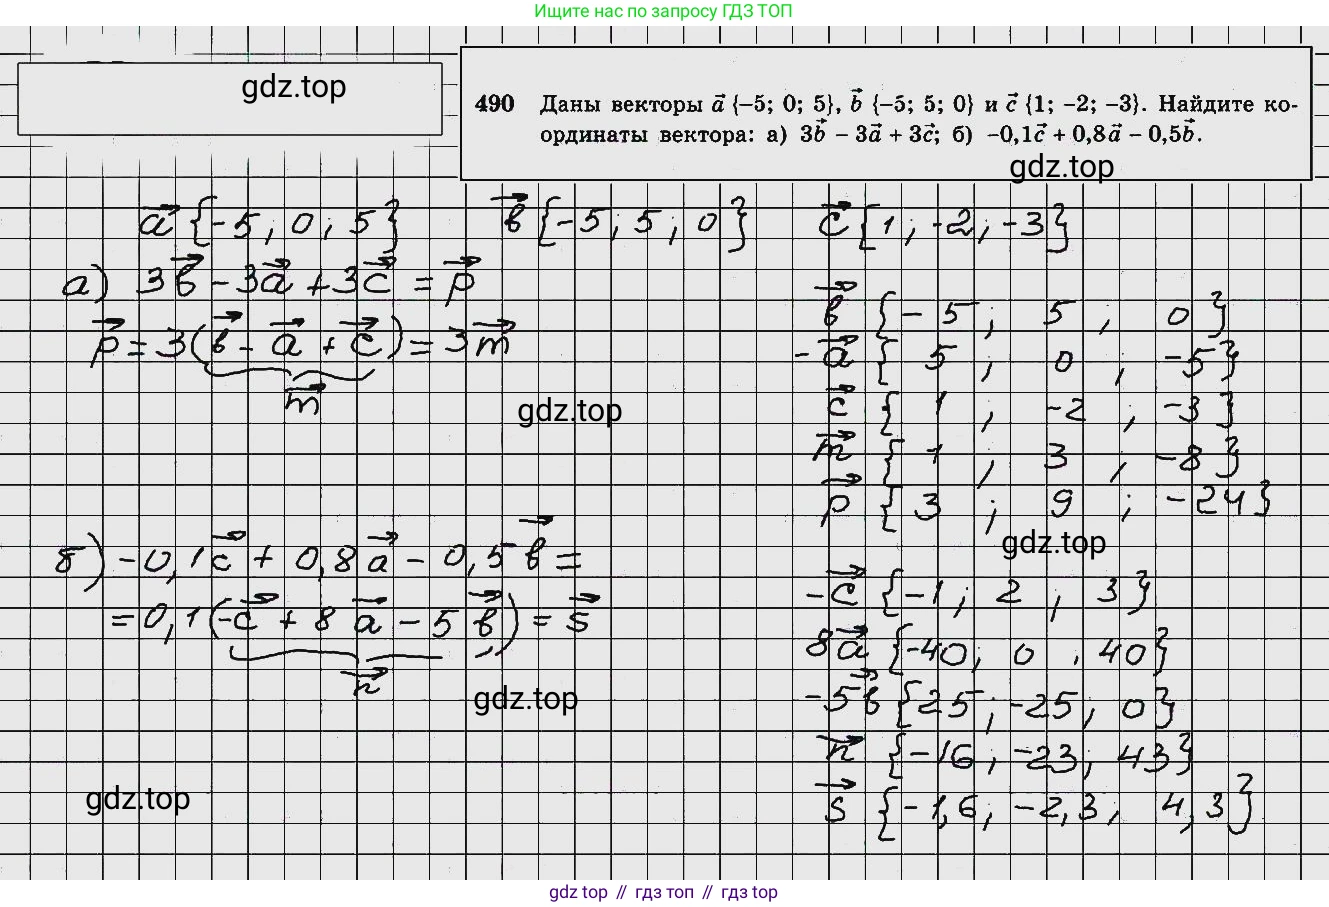 Ищите нас по запросу ГДЗ ТОП
gdz.top
490 Даны векторы a⃗ {−5; 0; 5}, b⃗ {−5; 5; 0} и c⃗ {1; −2; −3}. Найдите ко-
ординаты вектора: а) 3b⃗ − 3a⃗ + 3c⃗; б) −0,1c⃗ + 0,8a⃗ − 0,5b⃗.
gdz.top
a⃗ {-5; 0; 5} b⃗ {-5; 5; 0} c⃗ {1; -2; -3}
а) 3b⃗ - 3a⃗ + 3c⃗ = p⃗
p⃗ = 3(b⃗ - a⃗ + c⃗) = 3m⃗
m⃗
b⃗ {-5; 5; 0}
-a⃗ {5; 0; -5}
c⃗ {1; -2; -3}
m⃗ {1; 3; -8}
p⃗ {3; 9; -24}
gdz.top
gdz.top
б) -0,1c⃗ + 0,8a⃗ - 0,5b⃗ =
= 0,1(-c⃗ + 8a⃗ - 5b⃗) = s⃗
n⃗
-c⃗ {-1; 2; 3}
8a⃗ {-40; 0; 40}
-5b⃗ {25; -25; 0}
n⃗ {-16; -23; 43}
s⃗ {-1,6; -2,3; 4,3}
gdz.top
gdz.top
gdz top // гдз топ // gdz top